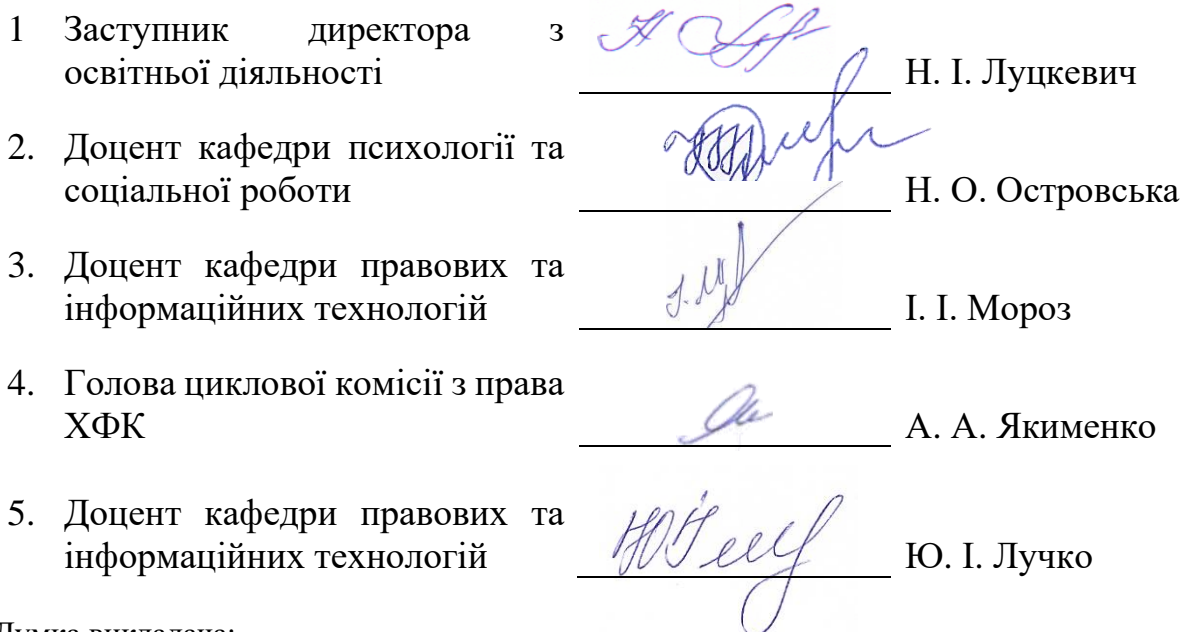 1 Заступник директора з
освітньої діяльності Н. І. Луцкевич
2. Доцент кафедри психології та
соціальної роботи Н. О. Островська
3. Доцент кафедри правових та
інформаційних технологій І. І. Мороз
4. Голова циклової комісії з права
ХФК А. А. Якименко
5. Доцент кафедри правових та
інформаційних технологій Ю. І. Лучко